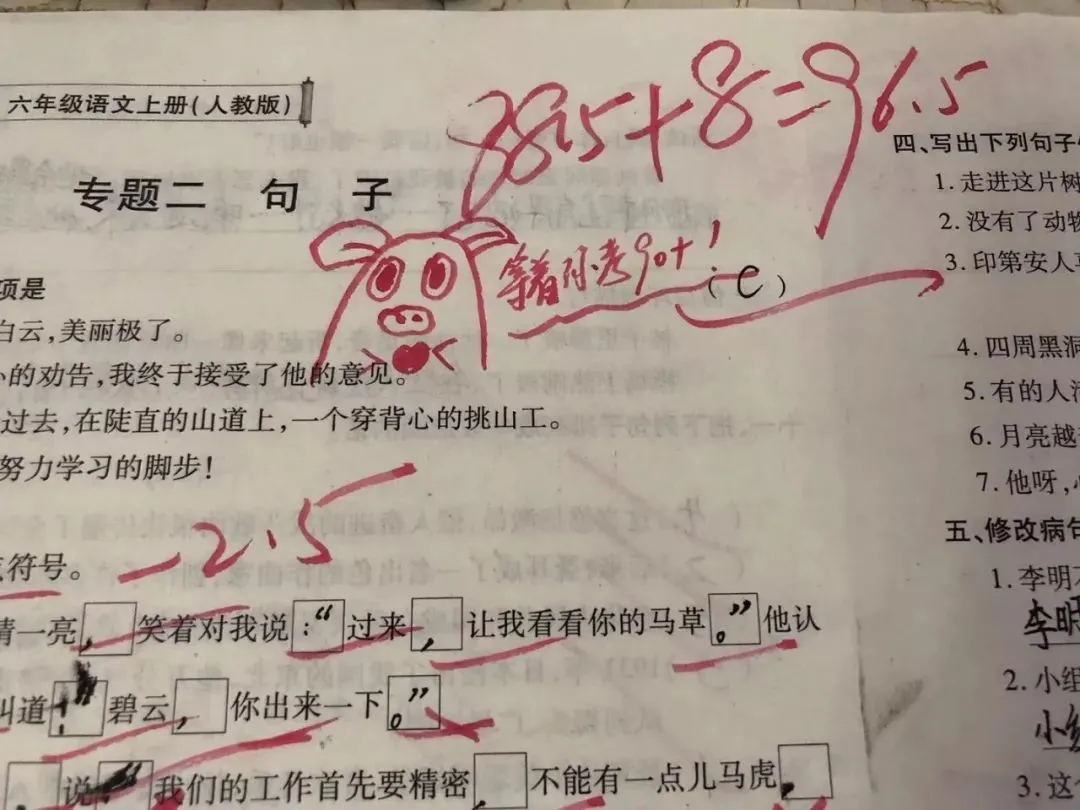 六年级语文上册(人教版)
88.5+8=96.5
专题二 句 子
等着你考90+!
(C)
项是
白云,美丽极了。
的劝告,我终于接受了他的意见。
过去,在陡直的山道上,一个穿背心的挑山工。
努力学习的脚步!
-2.5
符号。
一亮,笑着对我说:“过来,让我看看你的马草。”他认
叫道!”碧云,你出来一下。”
,说:“我们的工作首先要精密 不能有一点儿马虎,
四、写出下列句子
1.走进这片树
2.没有了动物
3.印第安人
4.四周黑洞
5.有的人
6.月亮越
7.他呀,
五、修改病句
1.李明
李明
2.小组
小组
3.这